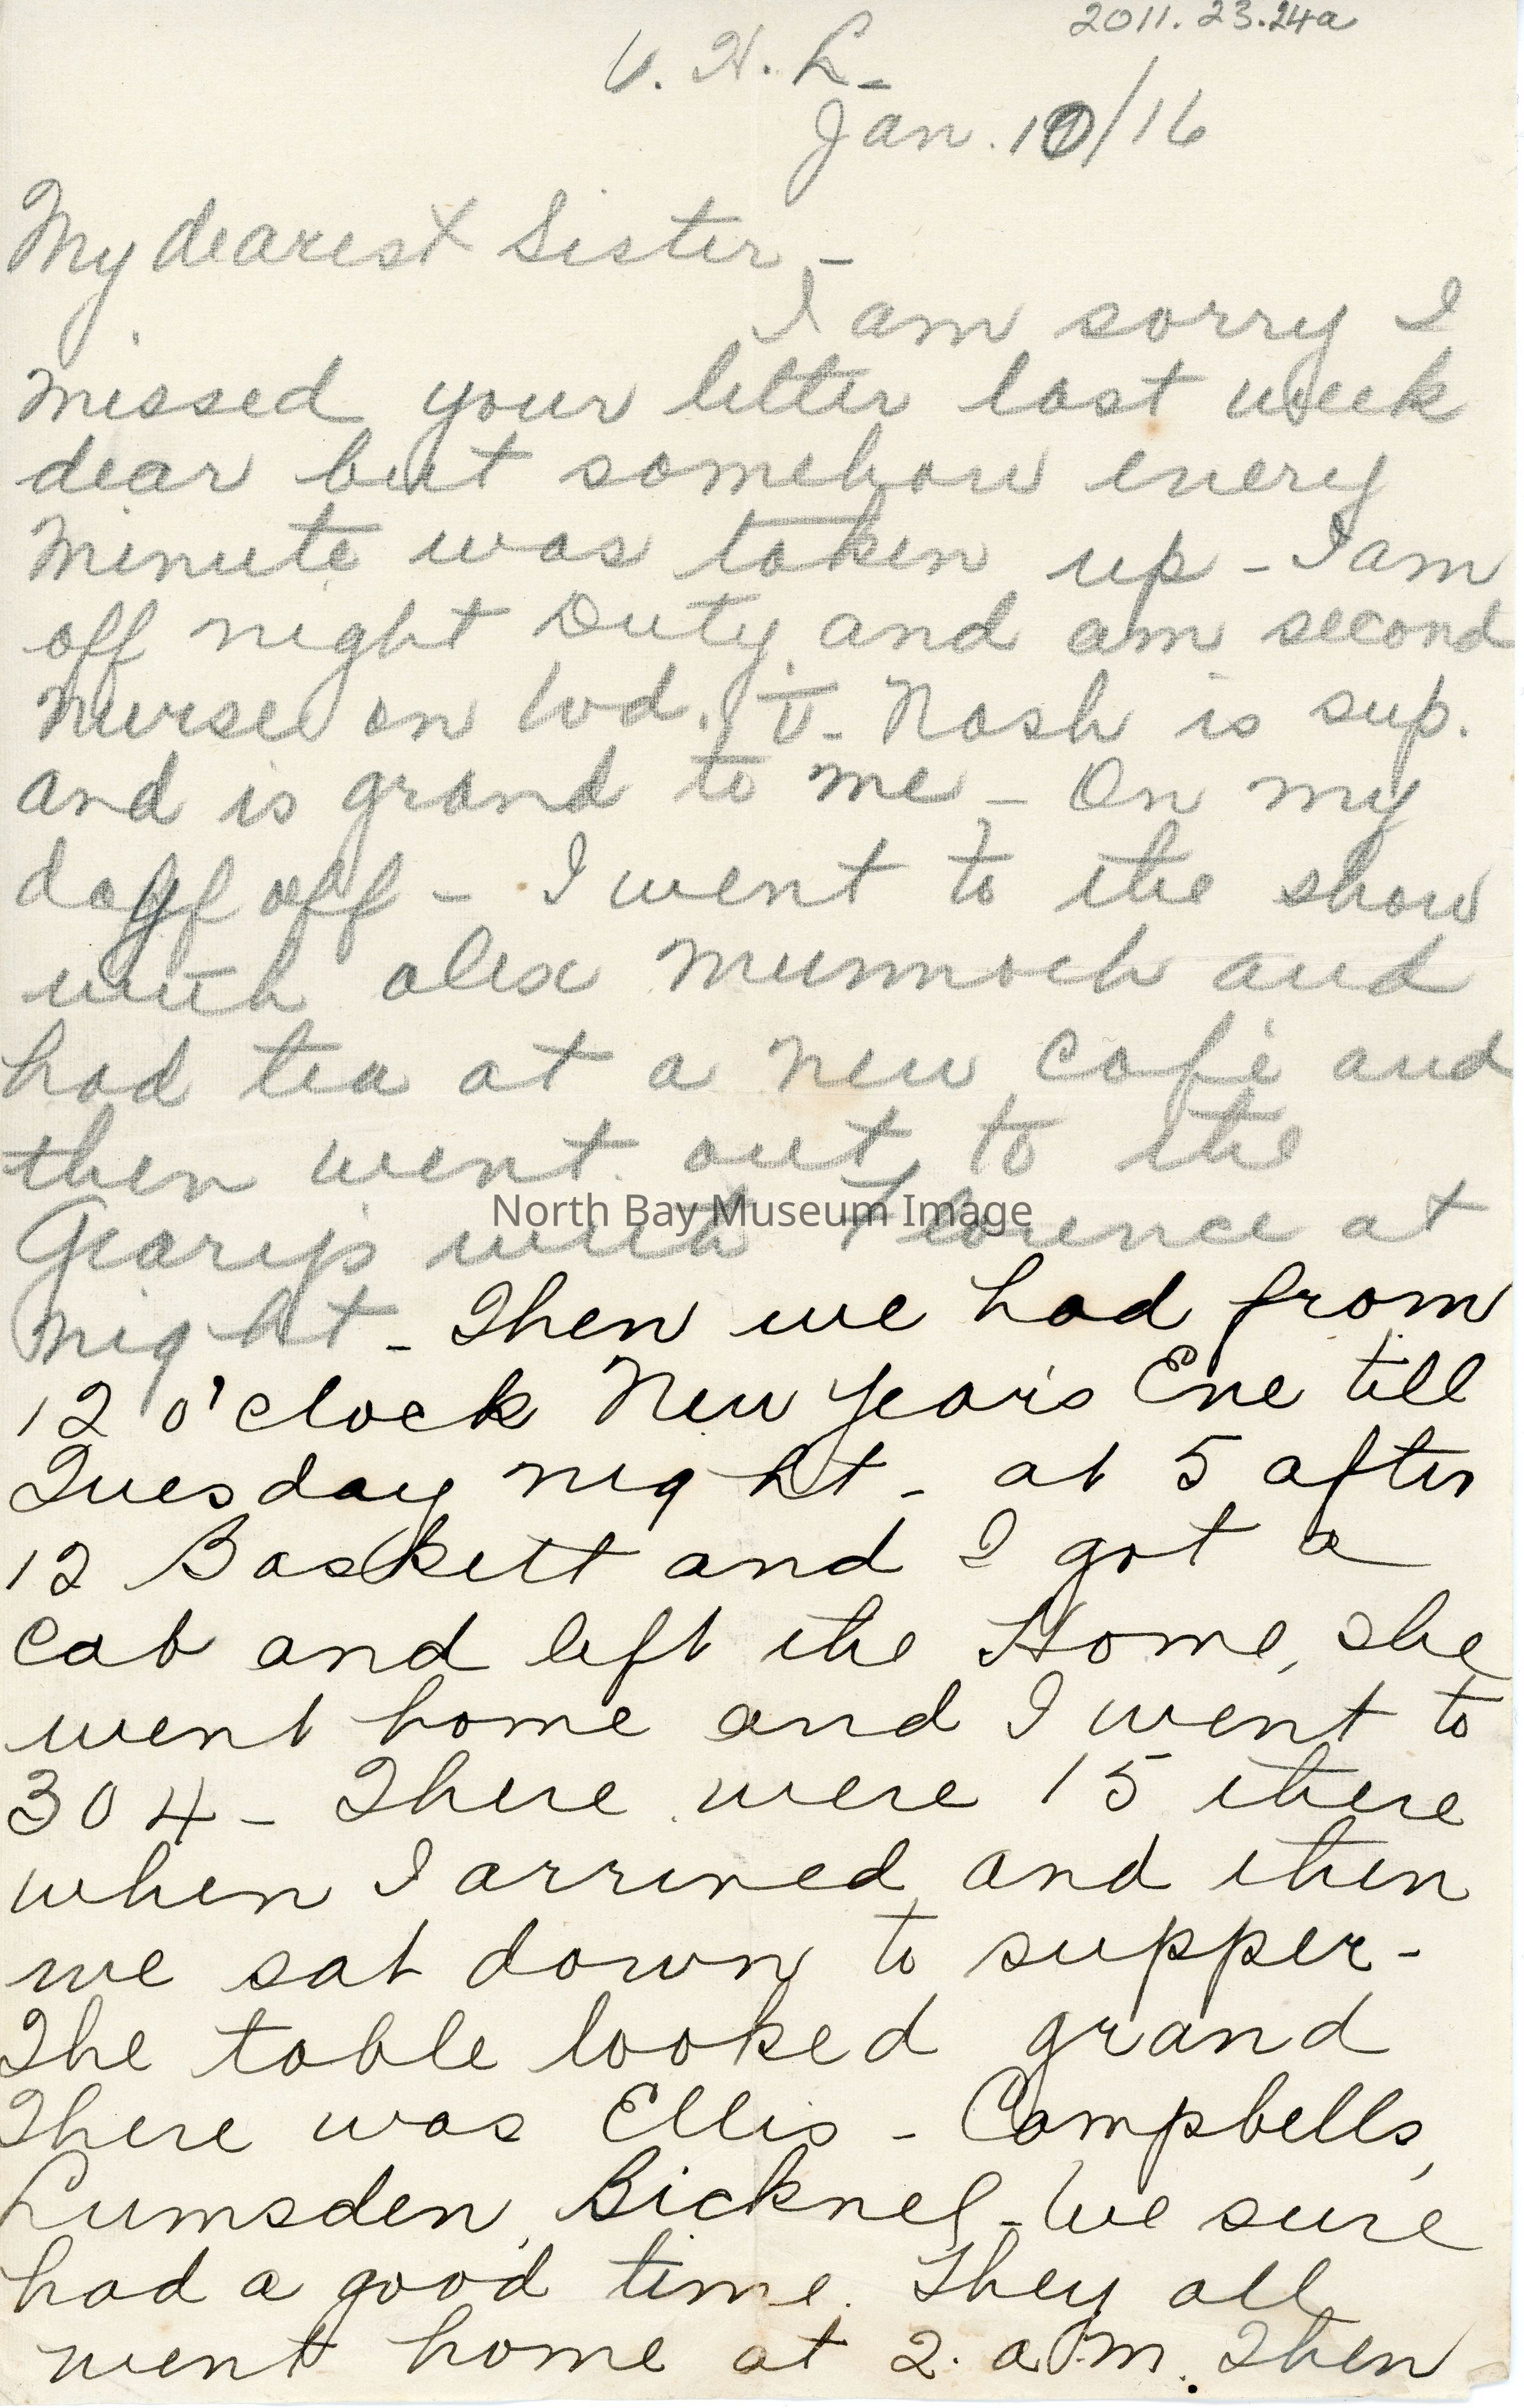 2011.23.24a
V. H. L.
Jan. 10/16
My dearest Sister,-
I am sorry I
missed your letter last week
dear but somehow every
minute was taken up - I am
off night Duty and am second
nurse on Wd. V - Nash is sup.
and is grand to me - On my
day off - I went to the show
with Alex Munnoch and
had tea at a new Café and
then went out to the
Geary's with Florence at
North Bay Museum Image
night - Then we had from
12 o'clock New Year's Eve till
Tuesday night - at 5 after
12 Baskett and I got a
cab and left the Home, she
went home and I went to
304 - There were 15 there
when I arrived and then
we sat down to supper -
The table looked grand
There was Ellis - Campbells,
Lumsden, Bicknel - We sure
had a good time. They all
went home at 2. a.m. Then